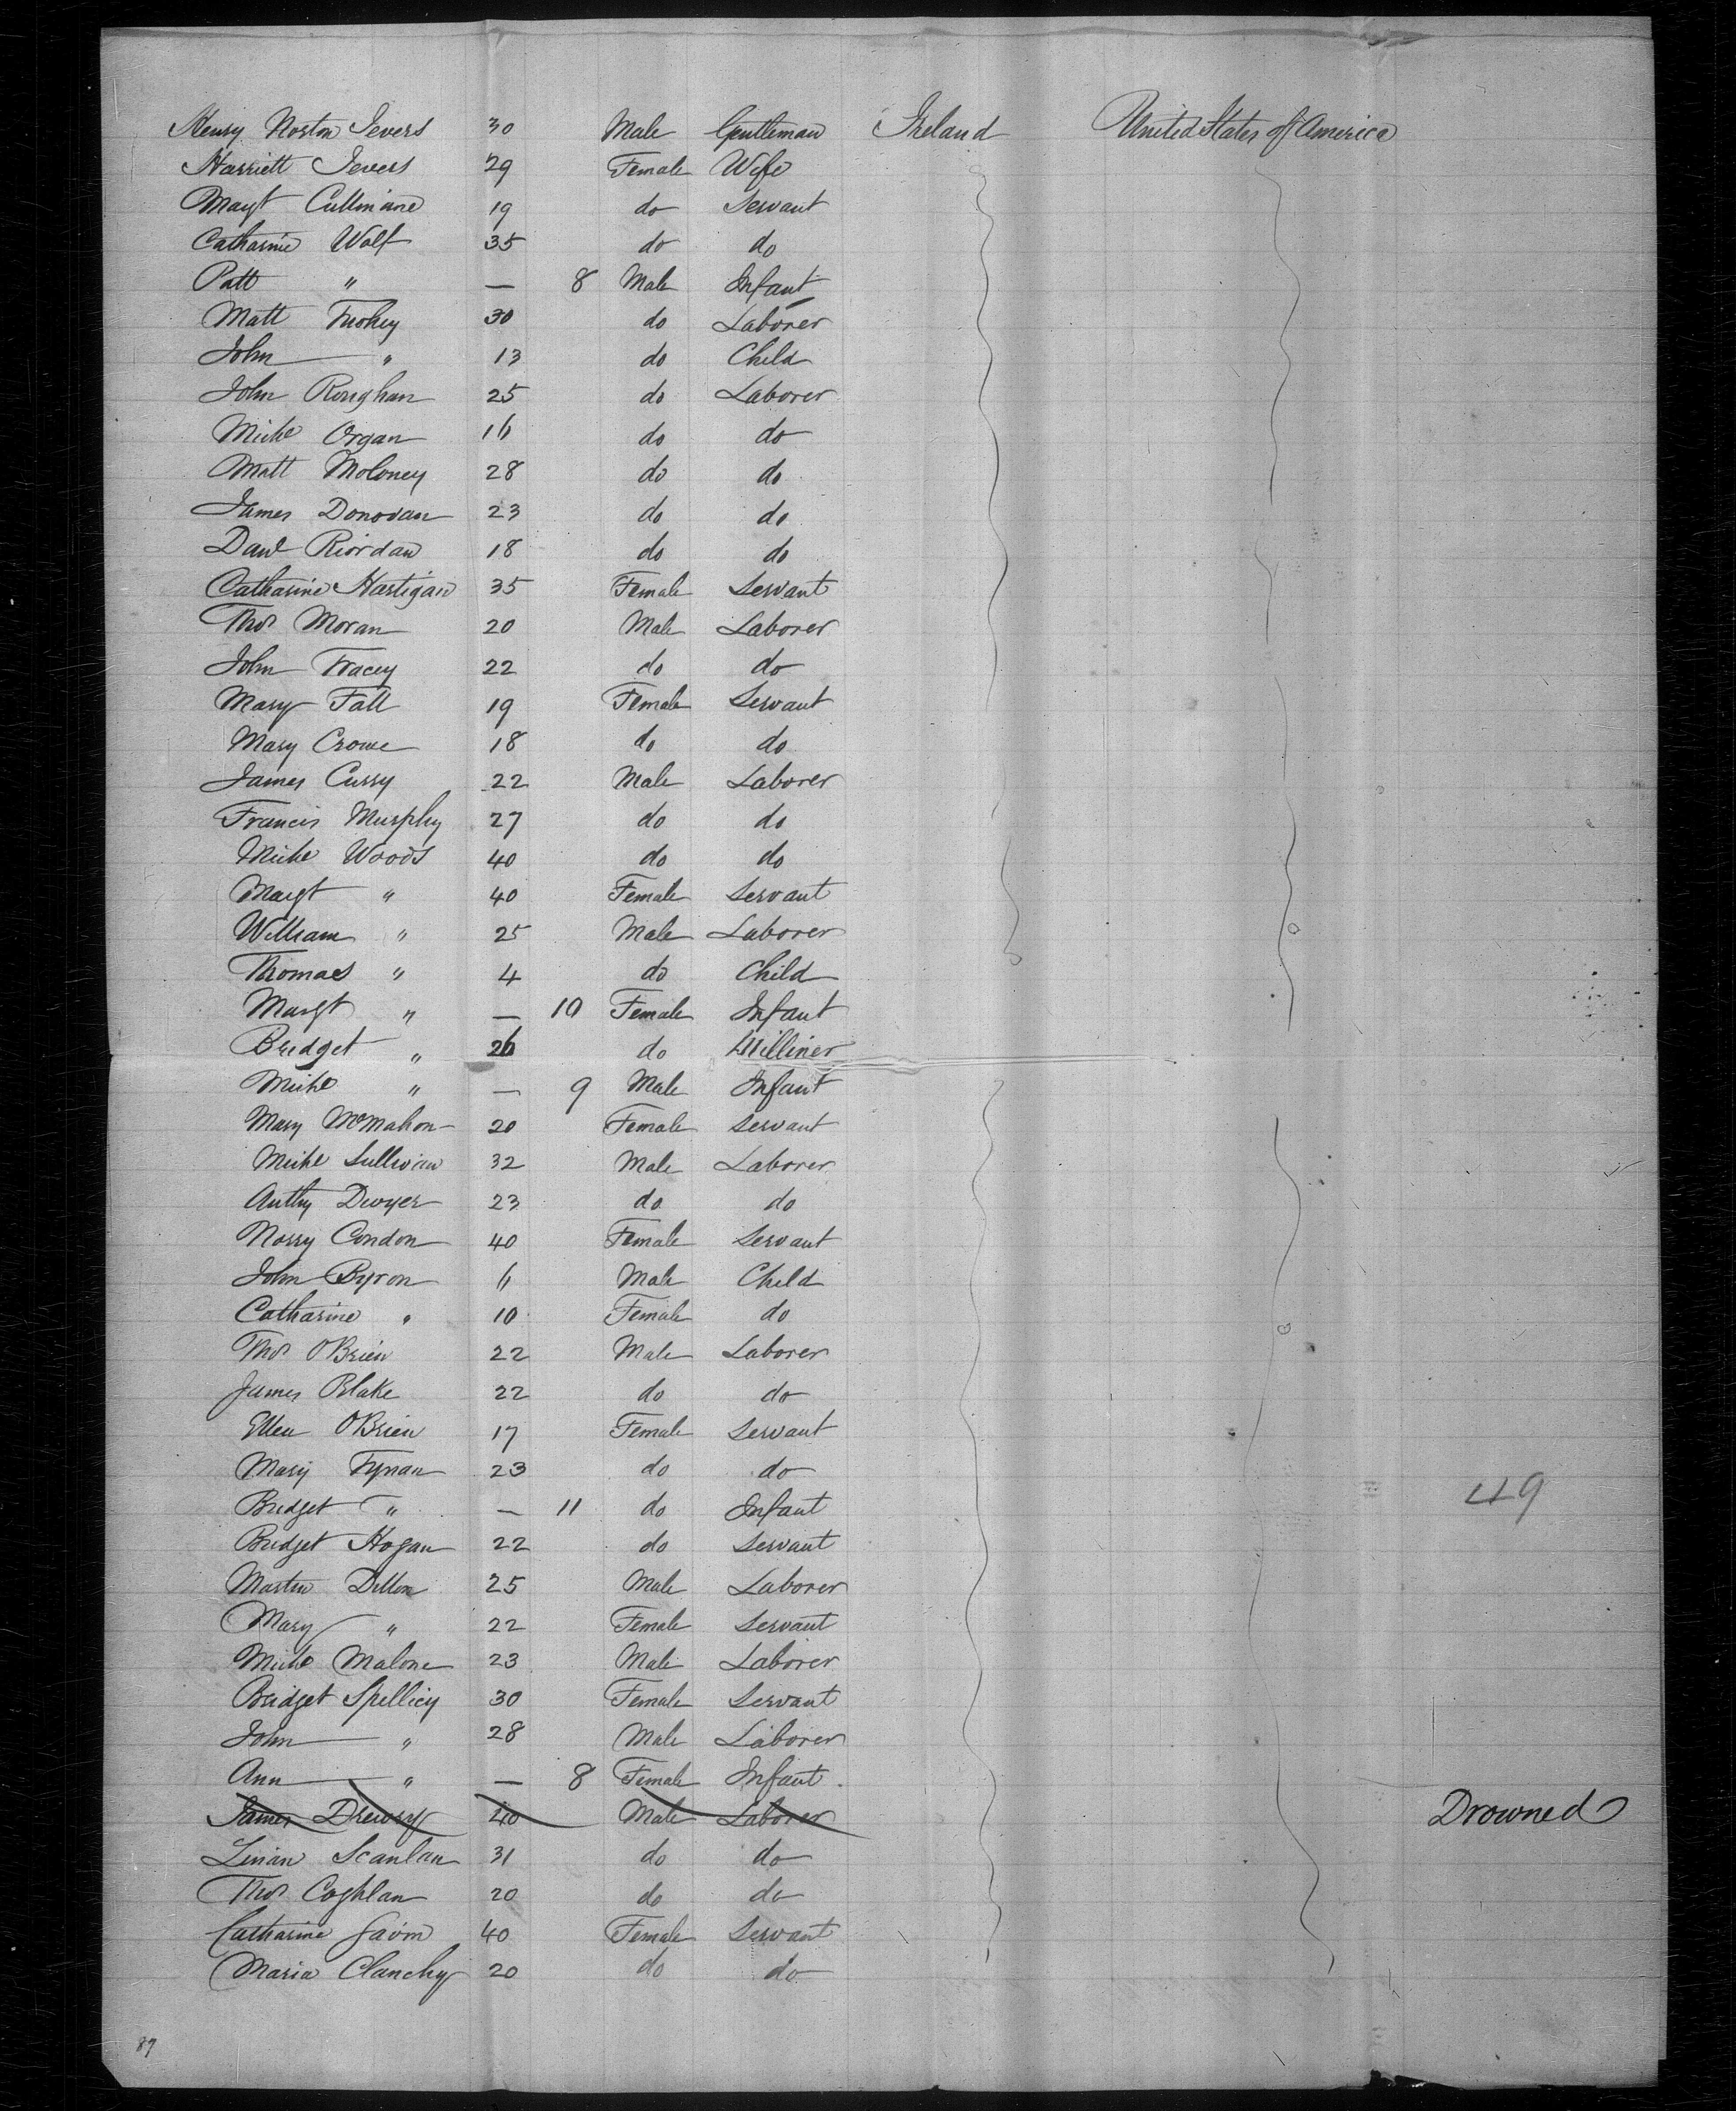 Henry Norton Ievers 30 Male Gentleman Ireland United States of America
Harriett Ievers 29 Female Wife
Margt Cullinane 19 do Servant
Catharine Wolf 35 do do
Patt " — 8 Male Infant
Matt Tuohey 30 do Laborer
John " 13 do Child
John Roughan 25 do Laborer
Michl Organ 16 do do
Matt Moloney 28 do do
James Donovan 23 do do
Danl Riordan 18 do do
Catharine Hartigan 35 Female Servant
Thos Moran 20 Male Laborer
John Tracey 22 do do
Mary Fall 19 Female Servant
Mary Crowe 18 do do
James Curry 22 Male Laborer
Francis Murphy 27 do do
Michl Woods 40 do do
Margt " 40 Female Servant
William " 25 Male Laborer
Thomas " 4 do Child
Margt " — 10 Female Infant
Bridget " 26 do Milliner
Michl " — 9 Male Infant
Mary McMahon 20 Female Servant
Michl Sullivan 32 Male Laborer
Anthy Dwyer 23 do do
Norry Condon 40 Female Servant
John Byron 6 Male Child
Catharine " 10 Female do
Thos OBrien 22 Male Laborer
James Blake 22 do do
Ellen OBrien 17 Female Servant
Mary Fynan 23 do do
Bridget " — 11 do Infant 49
Bridget Hogan 22 do Servant
Martin Dillon 25 Male Laborer
Mary " 22 Female Servant
Michl Malone 23 Male Laborer
Bridget Spellicy 30 Female Servant
John " 28 Male Laborer
Ann " — 8 Female Infant
James Drewry 40 Male Laborer Drowned
Scanlan 31 do do
Thos Coghlan 20 do do
Catharine Gavin 40 Female Servant
Maria Clanchy 20 do do
87